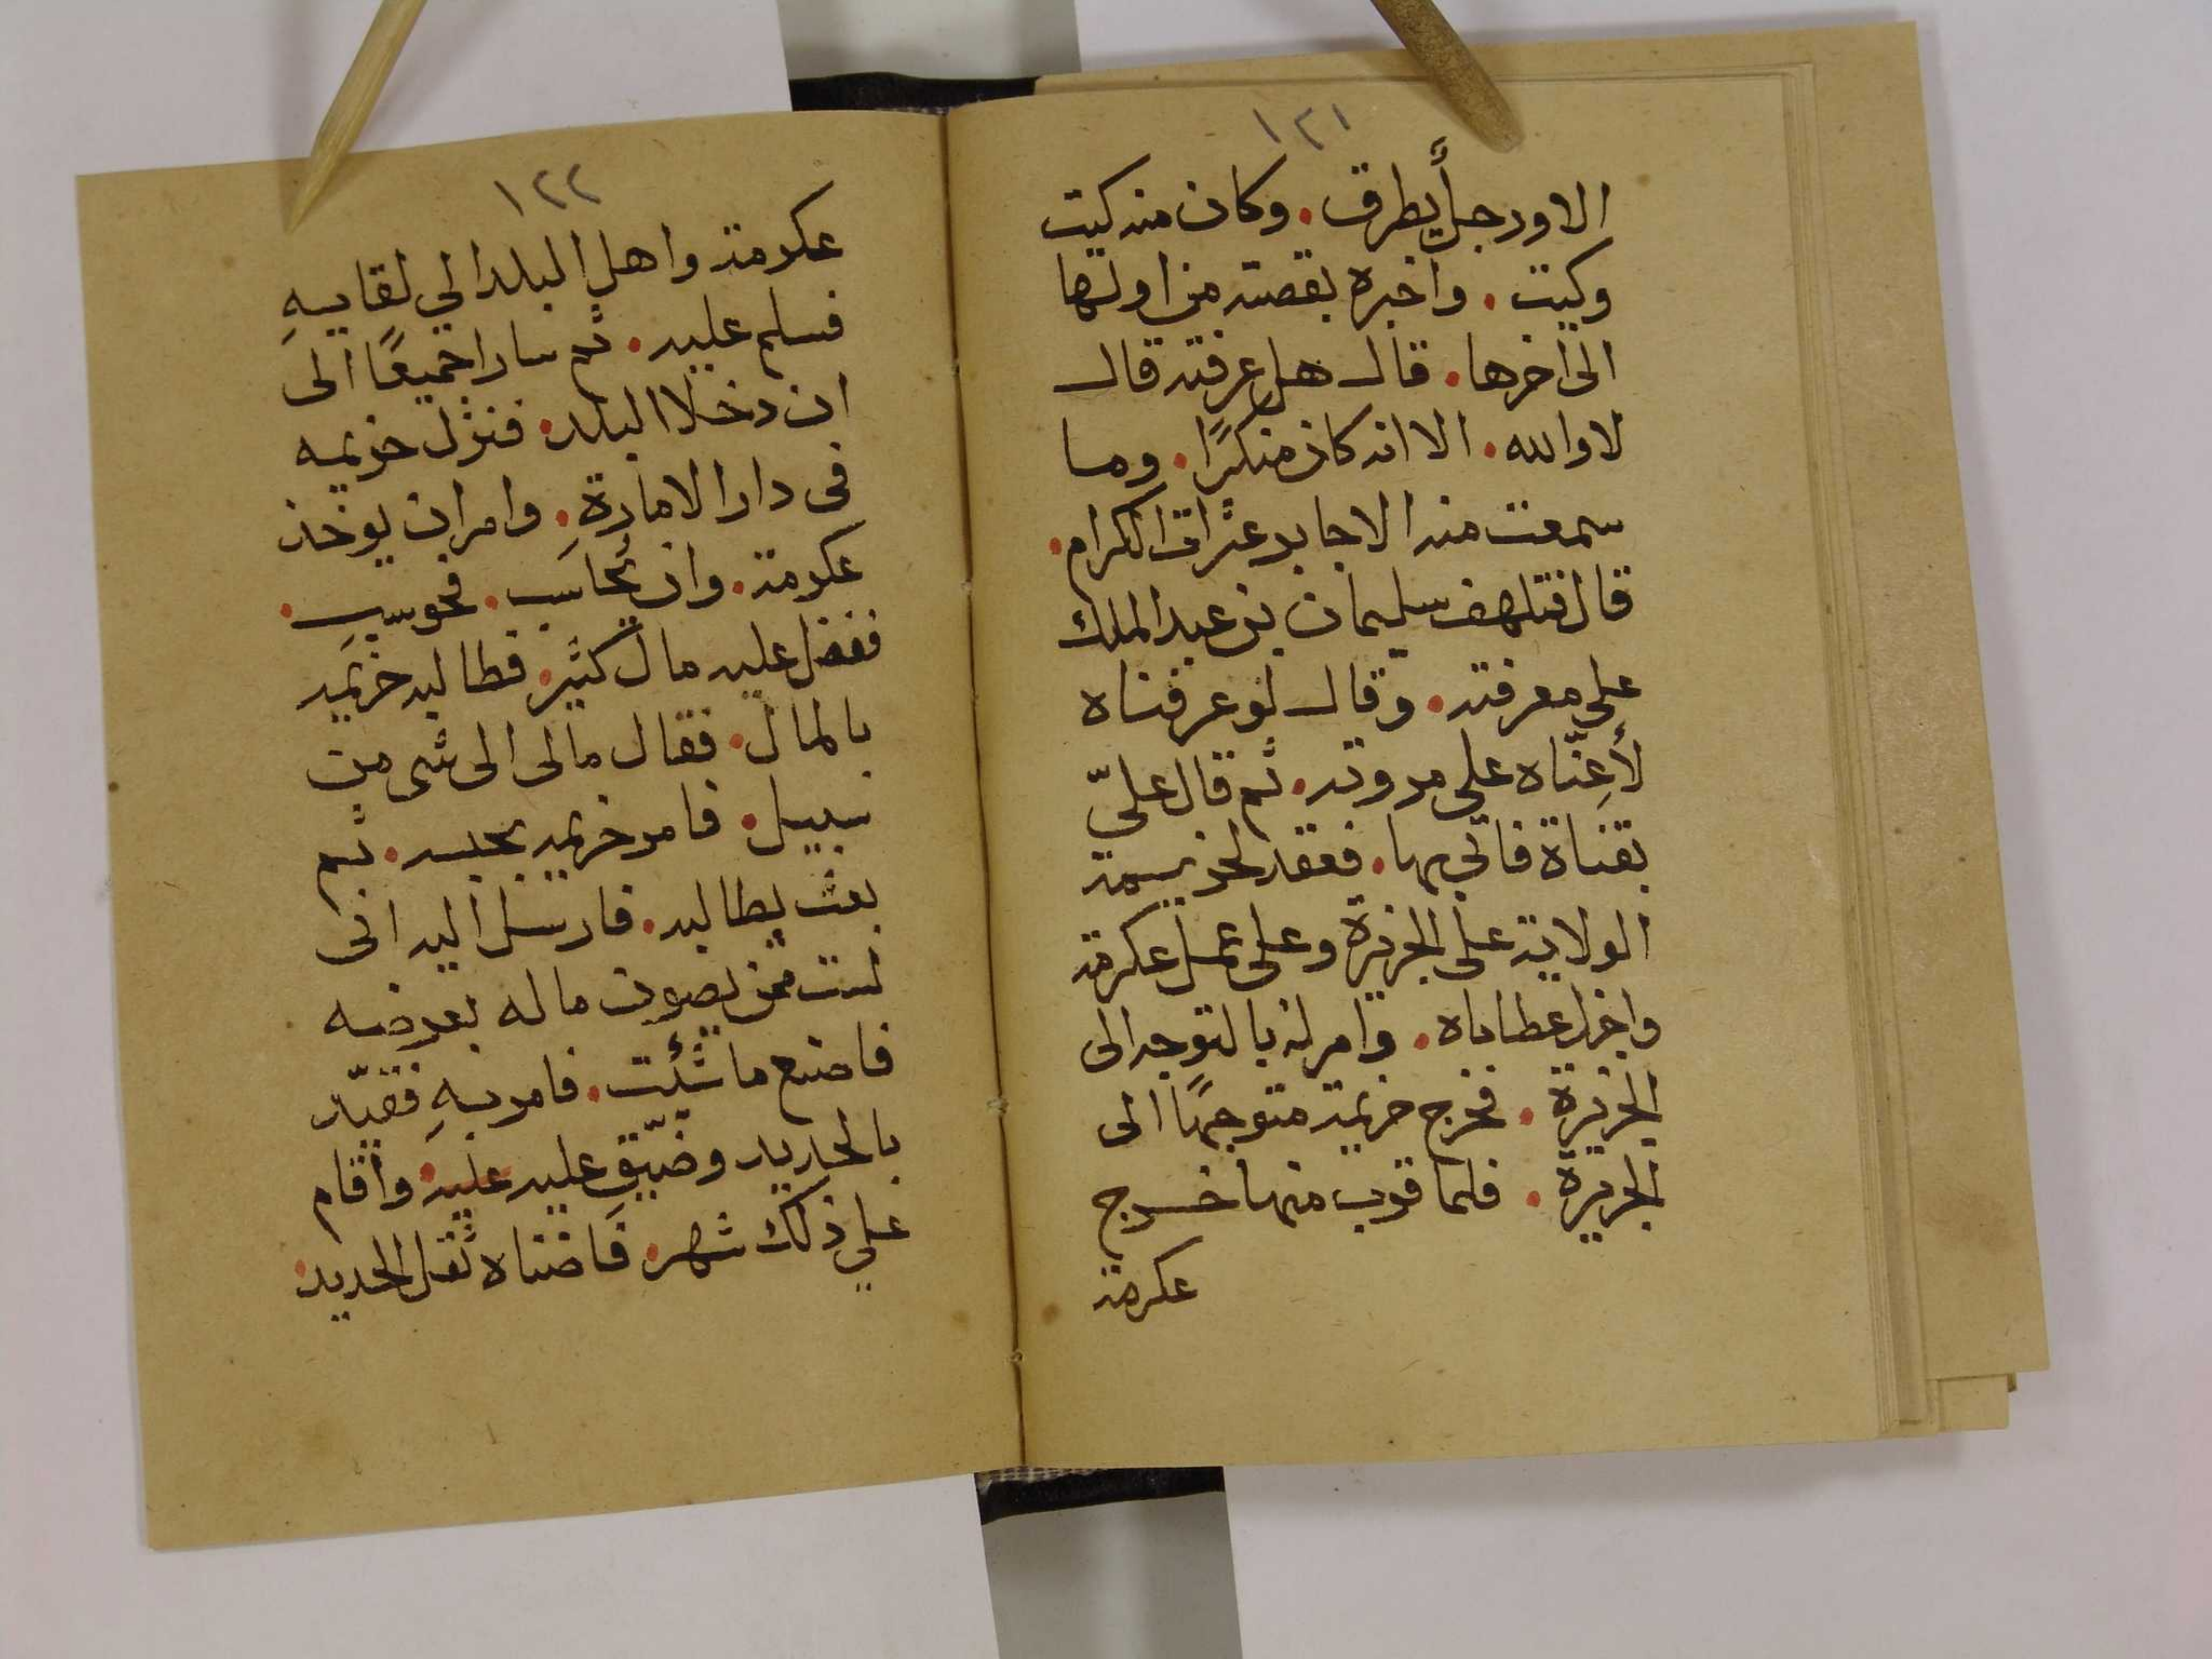 ١٢١
الا ورجل يطرق. وكان منه كيت
وكيت. واخبره بقصته من اولها
الى اخرها. قال هل عرفته قال
لا والله. الا انه كان منكرًا. وما
سمعت منه الا جابر عثرات الكرام.
قال فتلهف سليمان بن عبد الملك
على معرفته. وقال لو عرفناه
لأعِنّاه على مروته. ثم قال عليّ
بقناة فاتي بها. فعقد لخزيمة
الولاية على الجزيرة وعلى عمل عكرمة
واجزل عطاياه. وامر له بالتوجه الى
الجزيرة. فخرج خزيمة متوجهًا الى
الجزيرة. فلما قرب منها خرج
عكرمة
١٢٢
عكرمة واهل البلد الي لقايهِ
فسلم عليه. ثم سارا جميعًا الى
ان دخلا البلد. فنزل خزيمه
فى دار الامارة. وامر ان يوخذ
عكرمة. وان يُحاسَب. فحوسب.
ففضل عليه مال كثير. فطالبه خزيمه
بالمال. فقال مالى الى شى من
سبيل. فامر خزيمه بحبسه. ثم
بعث يطالبه. فارسل اليه انى
لست ممن يصون ماله بعرضه
فاصنع ما شئت. فامر بهِ فقيّد
بالحديد وضيّق عليه عليه. واقام
علي ذلك شهر. فاضناه ثقل الحديد.